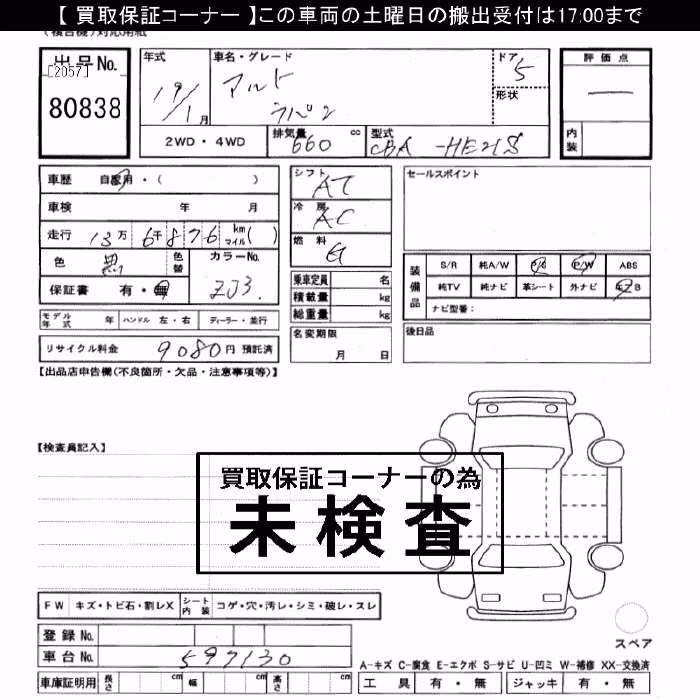 【 買取保証コーナー 】この車両の土曜日の搬出受付は17:00まで
出品No.
[2057]
80838
年式
19/1月
車名・グレード
アルト
ラパン
ドア
5
形状
評価点
—
内装
2WD・4WD
排気量
660 cc
型式
CBA-HE21S
車歴 自家用・( )
車検 年 月
走行 13万 6千 876 km マイル( )
色 黒 色替
カラーNo.
ZJ3
保証書 有・無
シフト
AT
冷房
AC
燃料
G
乗車定員 名
積載量 kg
総重量 kg
セールスポイント
装備品
S/R 純A/W P/S P/W ABS
純TV 純ナビ 革シート 外ナビ エアB
ナビ型番:
モデル年式 年 ハンドル 左・右 ディーラー・並行
リサイクル料金 9080円 預託済
名変期限
月 日
後日品
【出品店申告欄(不良箇所・欠品・注意事項等)】
【検査員記入】
買取保証コーナーの為
未検査
FW キズ・トビ石・割レX シート内装 コゲ・穴・汚レ・シミ・破レ・スレ
登録No.
車台No. 597130
スペア
A-キズ C-腐食 E-エクボ S-サビ U-凹ミ W-補修 XX-交換済
車庫証明用 長さ cm 幅 cm 高さ cm
工具 有・無 ジャッキ 有・無